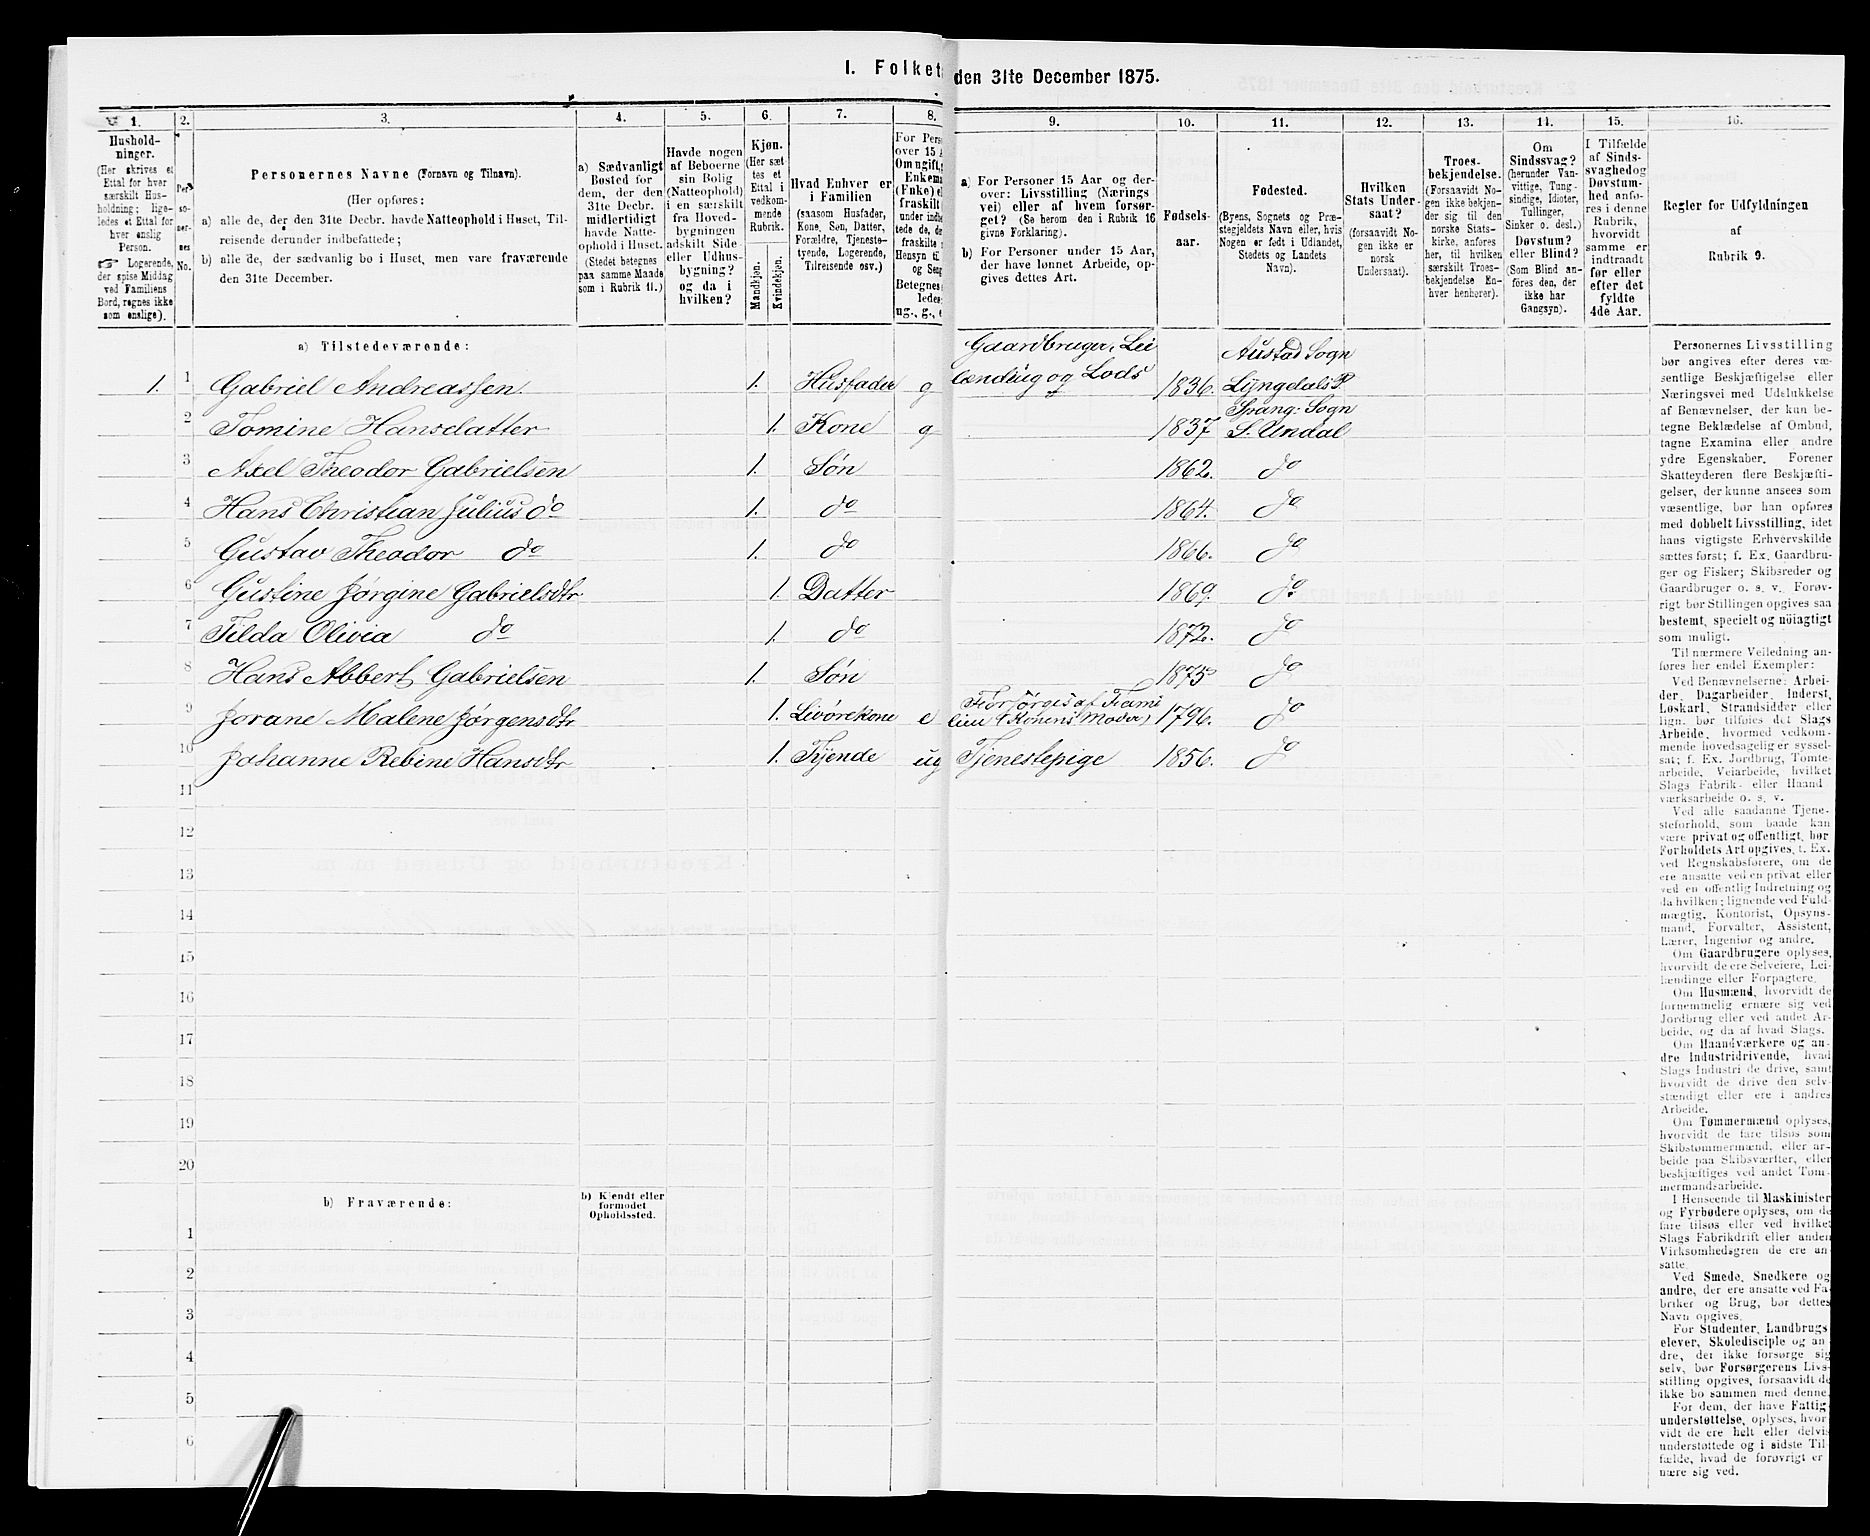 I. Folket
den 31te December 1875.
1.
2.
3.
4.
5.
6.
7.
8.
9.
10.
11.
12.
13.
14.
15.
16.
Hushold-
ninger.
(Her skrives et
Ettal for hver
særskilt Hus-
holdning; lige-
ledes et Ettal for
hver enslig
Person.
☞ Logerende,
der spise Middag
ved Familiens
Bord, regnes ikke
som enslige).
Per-
so-
ner-
nes
No.
Personernes Navne (Fornavn og Tilnavn).
(Her opføres:
a) alle de, der den 31te Decbr. havde Natteophold i Huset, Til-
reisende derunder indbefattede;
b) alle de, der sædvanlig bo i Huset, men vare fraværende
den 31te December.
a) Sædvanligt
Bosted for
dem, der den
31te Decbr.
midlertidigt
havde Natte-
ophold i Huset.
(Stedet betegnes
paa samme Maade
som i Rubrik 11.)
Havde nogen
af Beboerne
sin Bolig
(Natteophold)
i en særskilt
fra Hoved-
bygningen
adskilt Side-
eller Udhus-
bygning?
og da i
hvilken?
Kjøn.
(Her sæt-
tes et
Ettal i
vedkom-
mende
Rubrik.
Mandkjøn.
Kvindekjøn.
Hvad Enhver er
i Familien
(saasom Husfader,
Kone, Søn, Datter,
Forældre, Tjeneste-
tyende, Logerende,
Tilreisende osv.)
For Pers
over 15 A
Om ugift,
Enkema
(Enke) e
fraskilt
under indbe
tede de, de
fraskilte
Hensyn ti
og Seng
Betegnes
ledes:
ug., g., e
a) For Personer 15 Aar og der-
over: Livsstilling (Nærings-
vei) eller af hvem forsør-
get? (Se herom den i Rubrik 16
givne Forklaring).
b) For Personer under 15 Aar,
der have lønnet Arbeide, op-
gives dettes Art.
Fødsels-
aar.
Fødested.
(Byens, Sognets og Præ-
stegjeldets Navn eller, hvis
Nogen er født i Udlandet,
Stedets og Landets
Navn).
Hvilken
Stats Under-
saat?
(forsaavidt No-
gen ikke er
norsk
Undersaat).
Troes-
bekjendelse.
(Forsaavidt No-
gen ikke bekjen-
der sig til den
norske Stats-
kirke, anføres
her, til hvilken
særskilt Troes-
bekjendelse En-
hver henhører).
Om
Sindssvag?
(herunder Van-
vittige, Tung-
sindige, Idioter,
Tullinger,
Sinker o. desl.)
Døvstum?
eller Blind?
(Som Blind an-
føres den, der
ikke har
Gangsyn).
I Tilfælde
af Sinds-
svaghed og
Døvstum-
hed anfø-
res i denne
Rubrik,
hvorvidt
samme er
indtraadt
før eller
efter det
fyldte
4de Aar.
Regler for Udfyldningen
af
Rubrik 9.
a) Tilstedeværende:
Gaardbruger, Lei
Austad Sogn
1. 1 Gabriel Andreassen. 1. Husfader g lænding og Lods 1836. Lyngdals P
Spang: Sogn
2 Tomine Hansdatter 1. Kone g 1837 S. Undal
3 Axel Theodor Gabrielsen 1. Søn 1862. do
4 Hans Christian Julius do 1. do 1864. do
5 Gustav Theodor do 1. do 1866. do
6 Gustine Jørgine Gabrielsdtr 1. Datter 1869. do
7 Tilda Olivia do 1. do 1872. do
8 Hans Abbert Gabrielsen 1. Søn 1875 do
Forsørges af Fami
9 Jorane Malene Jørgensdtr 1. Livørekone e lien (Konens Moder) 1796. do
10 Johanne Rebine Hansdtr 1. Tyende ug Tjenestepige 1856. do
11
12
13
14
15
16
17
18
19
20
b) Fraværende:
b) Kjendt eller
formodet
Opholdssted.
1
2
3
4
5
6
Personernes Livsstilling
bør angives efter deres væ-
sentlige Beskjæftigelse eller
Næringsvei med Udelukkelse
af Benævnelser, der kun be-
tegne Beklædelse af Ombud,
tagne Examina eller andre
ydre Egenskaber. Forener
Skatteyderen flere Beskjæfti-
gelser, der kunne ansees som
væsentlige, bør han opføres
med dobbelt Livsstilling, idet
hans vigtigste Erhvervskilde
sættes først; f. Ex. Gaardbru-
ger og Fisker; Skibsreder og
Gaardbruger o. s. v. Forøv-
rigt bør Stillingen opgives saa
bestemt, specielt og nøiagtigt
som muligt.
Til nærmere Veiledning an-
føres her endel Exempler:
Ved Benævnelserne: Arbei-
der, Dagarbeider, Inderst,
Løskarl, Strandsidder eller
lign. bør tilføies det Slags
Arbeide, hvormed vedkom-
mende hovedsagelig er syssel-
sat; f. Ex. Jordbrug, Tomte-
arbeide, Veiarbeide, hvilket
Slags Fabrik- eller Haand-
værksarbeide o. s. v.
Ved alle saadanne Tjene-
steforhold, som baade kan
være privat og offentligt, bør
Forholdets Art opgives, t. Ex.
ved Regnskabsførere, om de
ere ansatte ved en privat eller
ved en offentlig Indretning og
da hvilken; lignende ved Fuld-
mægtig, Kontorist, Opsyns-
mand, Forvalter, Assistent,
Lærer, Ingeniør og andre.
Om Gaardbrugere oplyses,
hvorvidt de ere Selveiere, Lei-
lændinge eller Forpagtere.
Om Husmænd, hvorvidt de
fornemmelig ernære sig ved
Jordbrug eller ved andet Ar-
beide, og da af hvad Slags.
Om Haandværkere og an-
dre Industridrivende, hvad
Slags Industri de drive, samt
hvorvidt de drive den selv-
stændigt eller ere i andres
Arbeide.
Om Tømmermænd oplyses,
hvorvidt de fare tilsøs som
Skibstømmermænd, eller ar-
beide paa Skibsværfter, eller
beskjæftiges ved andet Tøm-
mermandsarbeide.
I Henseende til Maskinister
og Fyrbødere oplyses, om de
fare tilsøs eller ved hvilket
Slags Fabrikdrift eller anden
Virksomhedsgren de ere an-
satte.
Ved Smede, Snedkere og
andre, der ere ansatte ved Fa-
briker og Brug, bør dettes
Navn opgives.
For Studenter, Landbrugs-
elever, Skoledisciple og an-
dre, der ikke forsørge sig
selv, bør Forsørgerens Livs-
stilling opgives, forsaavidt de
ikke bo sammen med denne.
For dem, der have Fattig-
understøttelse, oplyses, hvor-
vidt de ere helt eller delvis
understøttede og i sidste Til-
fælde, hvad de forøvrigt er-
nære sig ved.